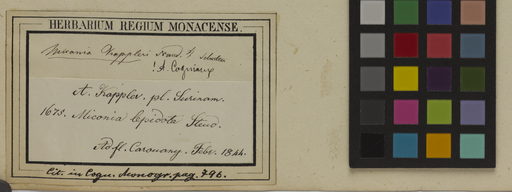 HERBARIUM REGIUM MONACENSE.
Miconia Kappleri Naud.
! A. Cogniaux
A. Kappler. pl. Surinam.
1675. Miconia lepidota Steud.
Ad fl. Carouany. Febr. 1844.
Cit. in Cogn. Monogr. pag. 796.